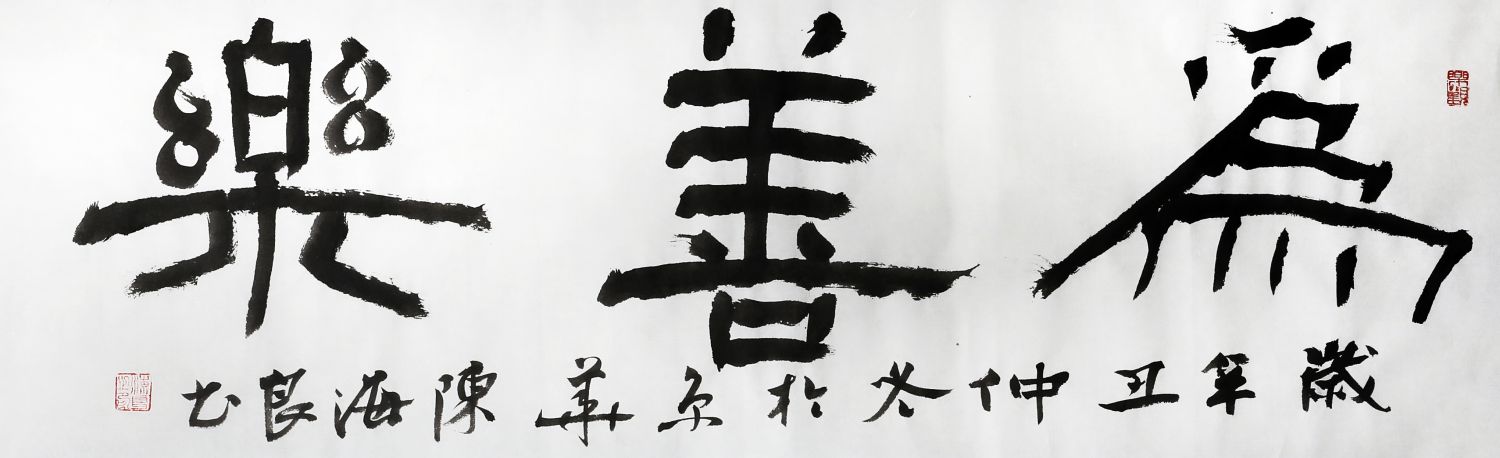 為善樂
歲辛丑仲冬於京華陳海良書